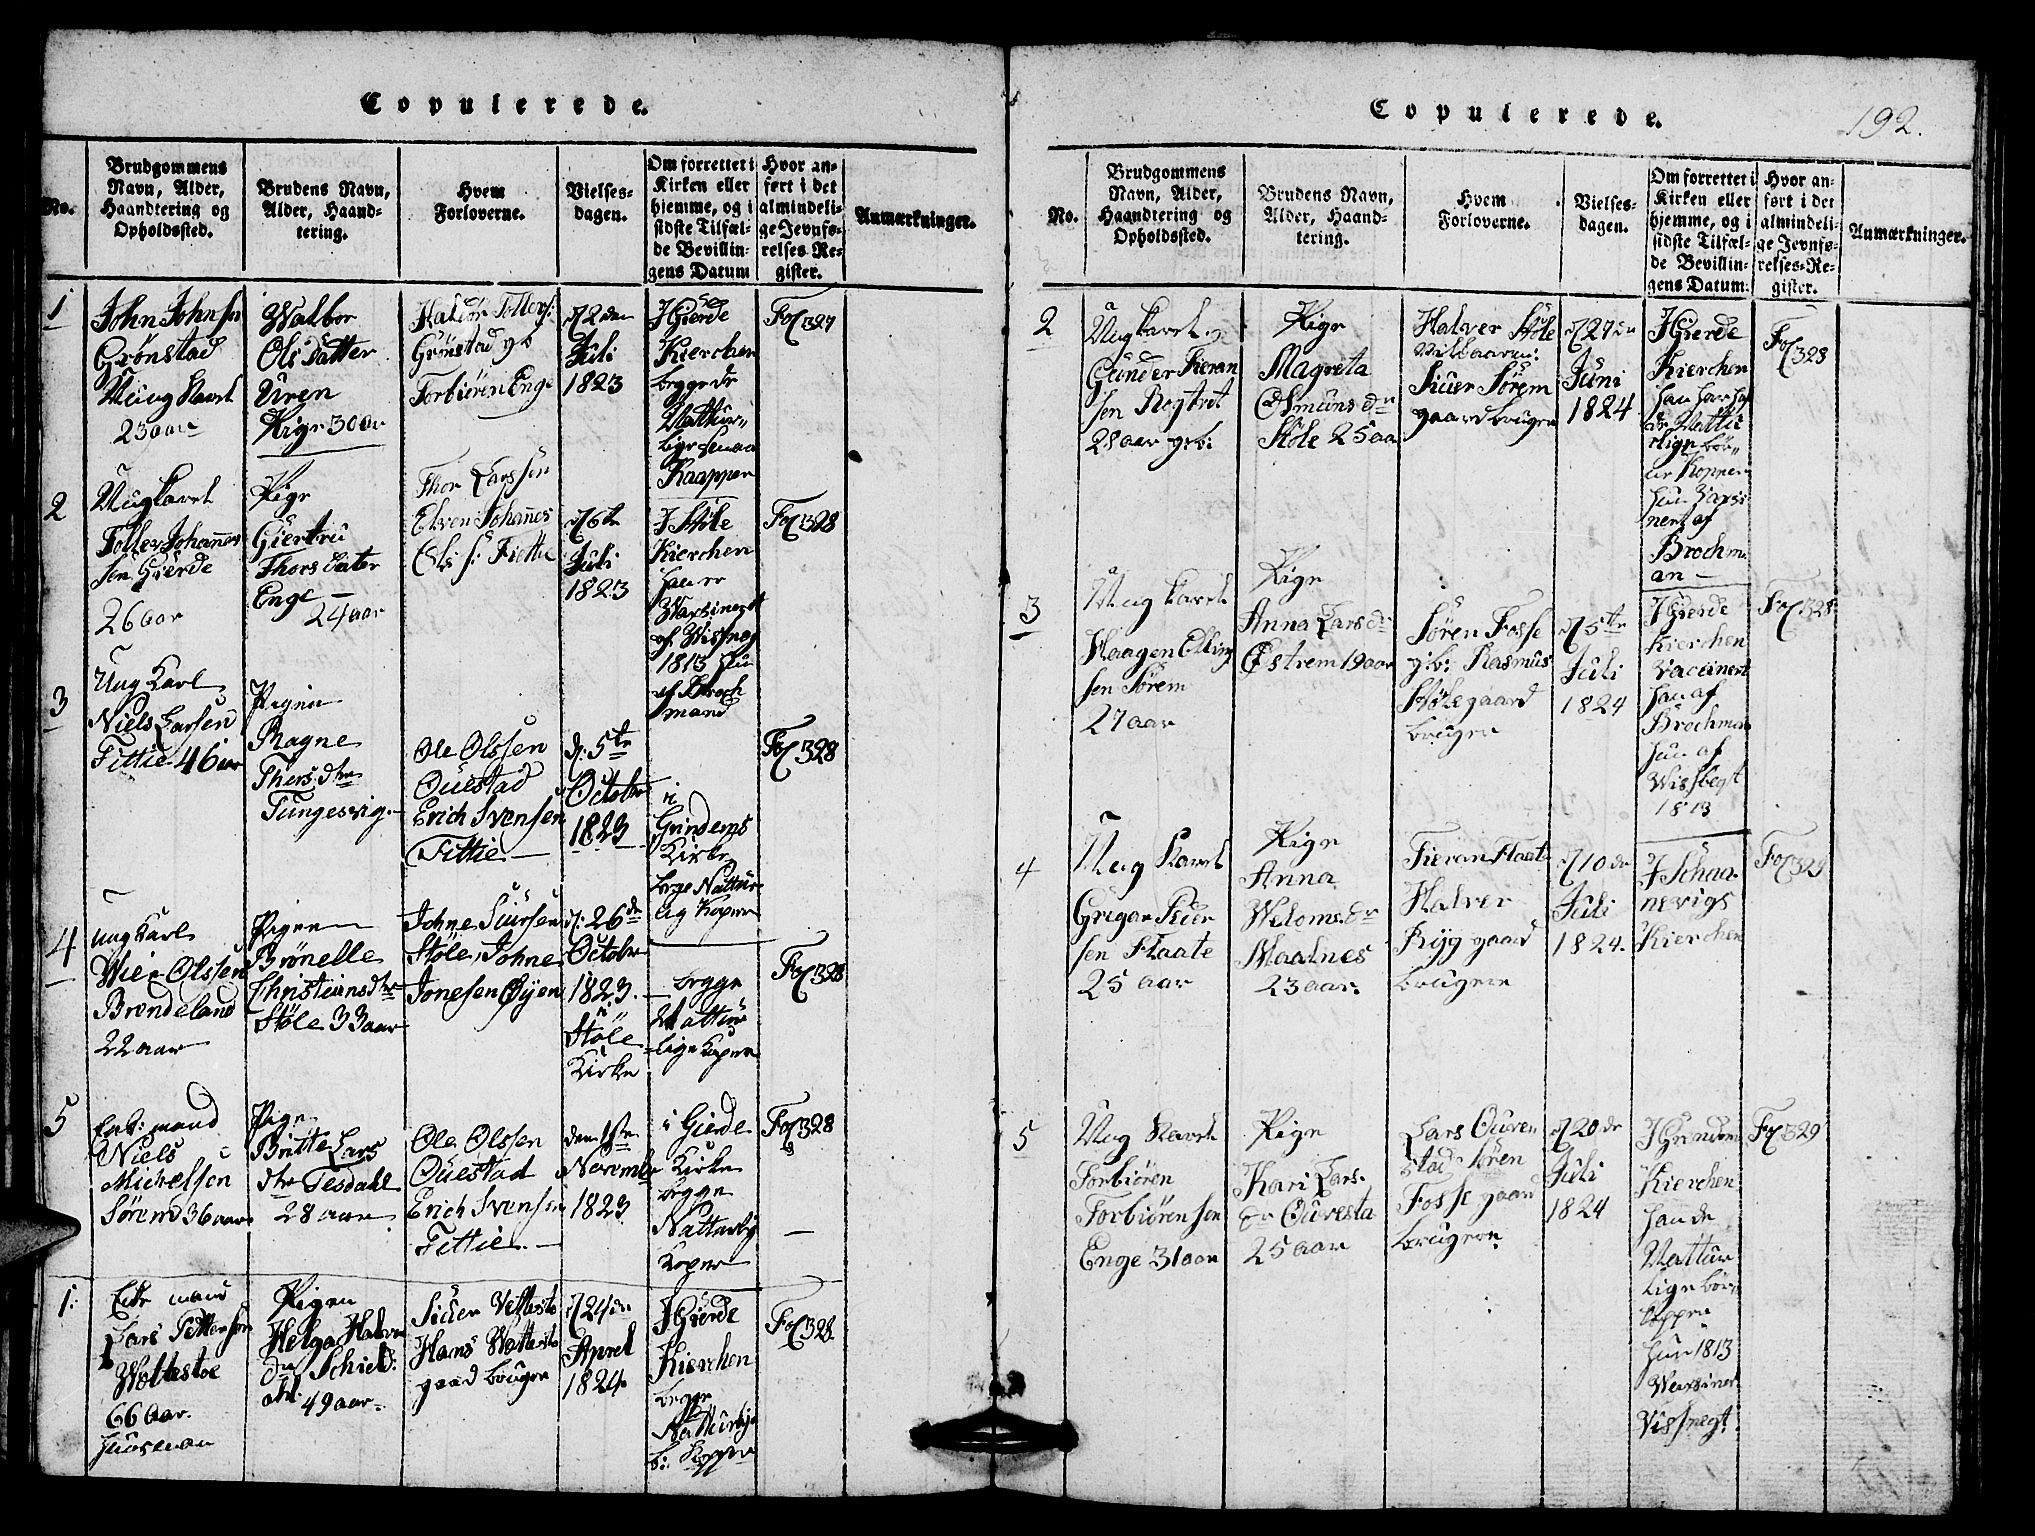 Copulerede.
No.
Brudgommens
Navn, Alder,
Haandtering og
Opholdssted.
Brudens Navn,
Alder, Haand-
tering.
Hvem
Forloverne.
Vielses-
dagen.
Om forrettet i
Kirken eller
hjemme, og i
sidste Tilfæl-
de Bevillin-
gens Datum
Hvor an-
ført i det
almindeli-
ge Jevnfø-
relses-Re-
gister.
Anmærkninger.
1
John Johnsen
Grønstad
Ung Karl
23 aar
Walbor
Ols Datter
Uren
Pige 30 aar
Grønstad
Torbiören Enge
d 2den
Juli
1823
I Gierde
Kierchen
begge de
Nattur-
Kaapper
Fol 327
2
Ung Karl
Tollev Johannes
sen Gierde
26 aar
Pige
Giertru
Thors Dater
Enge
24 aar
Thor Larssen
Elven Johannes
Ols s: Fiettie
d 6te
Juli
1823
I Støle
Kierchen
han er
Waxinert
af Wisneg
1813 hun
af Broch
mand
Fol 328
3
Ung Karl
Niels Larsen
Fittie 46 aar
Pigen
Ragne
Thors dtr
Tungesvig.
Ole Olssen
Ouestad
Erich Svensen
Fittie
d: 5te
October
1823
i
Grindems
Kirke
bege Nattur
lig Koper
Fol 328
4
ung Karl
Olssen
Brendeland
22 aar
Pigen
Brönelle
Christians dtr
Støle 33 aar
Johne Siursen
Støle, Johne
Jonesen Øyen
d: 26de
October
1823.
i
Støle
Kirke
begge
Nattur
lige Koper
Fol 328
5
Enke mand
Niels
Michelsen
Sørem 36 aar
Pige
Britte Lars
dtr Tesdahl
28 aar
Ole Olssen
Ouestad
Erich Svensen
Fittie.
den 1ste
Novemb
1823
i Gierde
Kirke
begge
Natturlig
Koper
Fol 328
1:
Enke mand
Lars Pettersen
Wattestøe
66 Aar.
Huusman
Pigen
Helga Halvor
49 aar
Siver Vettestø
Hans Wattestø
gaard bruger
d 24de
Aprel
1824
I Gierde
Kierchen
begge
Natturlige
b: Kopper
Fol 328
Copulerede.
192.
No.
Brudgommens
Navn, Alder,
Haandtering og
Opholdssted.
Brudens Navn,
Alder, Haand-
tering.
Hvem
Forloverne.
Vielses-
dagen.
Om forrettet i
Kirken eller
hjemme, og i
sidste Tilfæl-
de Bevillin-
gens Datum.
Hvor an-
ført i det
almindeli-
ge Jevnfø-
relses-Re-
gister.
Anmærkninger.
2
Ung Karl
Gunder Tieran
sen Regtvet
28 aar
Pige
Magreta
Osmuns dr
Støle 25 aar
Halver Støle
Siuer Sørem
gaard bruger
d 27de
Juni
1824
I Gierde
Kierchen
han har haf
de Nattu
rlige bør
ne Kopper
hun Vaxsi
nert af
Brochm
an
Fol 328
3
Ung Karl
Haagen Elling
sen Sørem
27 aar
Pige
Anna Lars dr
Østrem 19 aar
Søren Fosse
Rasmus
Støle gaard
bruger
d 5te
Juli
1824
I Gierde
Kierchen
Vaccinert
han af
Brochman
hun af
Wisnegt
1813
Fol 328
4
Ung Karl
Gregar Siuer
sen Flaate
25 aar
Pige
Anna
Weloms dr
Maalnes
23 aar.
Tieran Flaate
Halver
Ryg gaard
brugere
d 10de
Juli
1824.
I Schaa
nevigs
Kierchen
Fol 329
5
Ung Karl
Torbiören
Torbiörensen
Enge 31 aar
Pige
Kari Lars
dr Ouresta
25 aar
Lars Ouren
stad Sören
Fosse gaard
brugere
d 20de
Juli
1824
I Grendem
Kierchen
han de
Nattur
lige Bør
kopper
hun 1813
Waxiner
Vissnegt
Fol 329